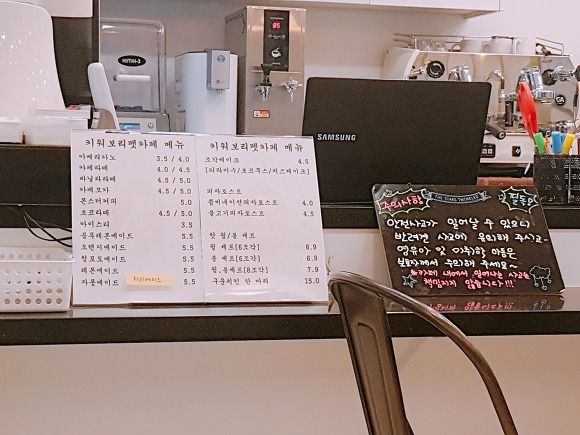 HIMH-3
85
SAMSUNG
키워보리펫카페 메뉴
아메리카노 3.5 / 4.0
카페라떼 4.0 / 4.5
바닐라라떼 4.5 / 5.0
카페모카 4.5 / 5.0
몬스터커피 5.0
초코라떼 4.5 / 5.0
아이스티 3.5
블루레몬에이드 5.5
오렌지에이드 5.5
청포도에이드 5.5
레몬에이드 5.5
자몽에이드 5.5
체리에이드
키워보리펫카페 메뉴
조각케이크 4.5
[티라미수/초코무스/치즈케이크]
피자토스트
콤비네이션피자토스트 4.0
불고기피자토스트 4.5
핫 윙/봉 세트
윙 세트[6조각] 6.9
봉 세트[6조각] 6.9
윙,봉세트[8조각] 7.9
구운치킨 한 마리 15.0
주의사항
THE STARS TWINKLED
안전사고가 일어날 수 있으니
반려견 사고에 유의해 주시고~
영유아 및 미취학 아동은
보호자께서 주의해 주세요~
※카페 내에서 일어나는 사고는
책임지지 않습니다!!!